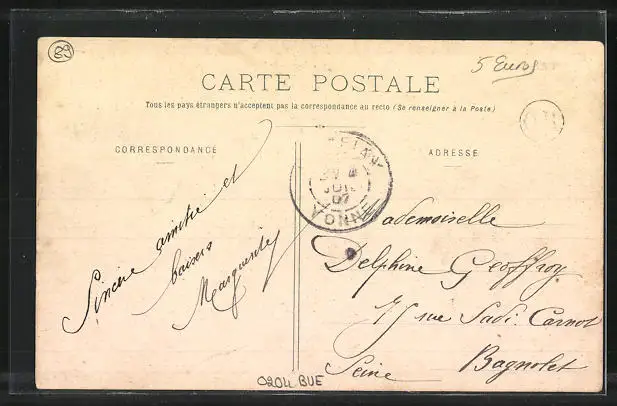 89
5 Euros
CARTE POSTALE
Tous les pays étrangers n'acceptent pas la correspondance au recto (Se renseigner à la Poste)
CORRESPONDANCE
ADRESSE
Sincère amitié et
baisers
Marguerite
YONNE
JUIL
07
Mademoiselle
Delphine Geoffroy
rue Sadi Carnot
Bagnolet
Seine
0204 BUE